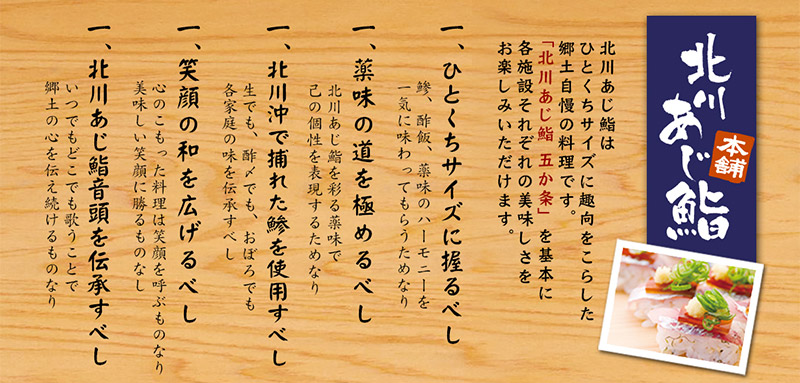 北川あじ鮨
本舗
北川あじ鮨は
ひとくちサイズに趣向をこらした
郷土自慢の料理です。
「北川あじ鮨 五か条」を基本に
各施設それぞれの美味しさを
お楽しみいただけます。
一、ひとくちサイズに握るべし
鯵、酢飯、薬味のハーモニーを
一気に味わってもらうためなり
一、薬味の道を極めるべし
北川あじ鮨を彩る薬味で
己の個性を表現するためなり
一、北川沖で捕れた鯵を使用すべし
生でも、酢〆でも、おぼろでも
各家庭の味を伝承すべし
一、笑顔の和を広げるべし
心のこもった料理は笑顔を呼ぶものなり
美味しい笑顔に勝るものなし
一、北川あじ鮨音頭を伝承すべし
いつでもどこでも歌うことで
郷土の心を伝え続けるものなり